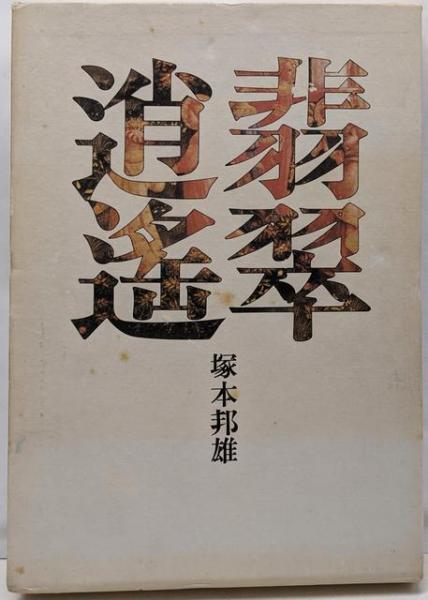 翡翠
逍遙
塚本邦雄